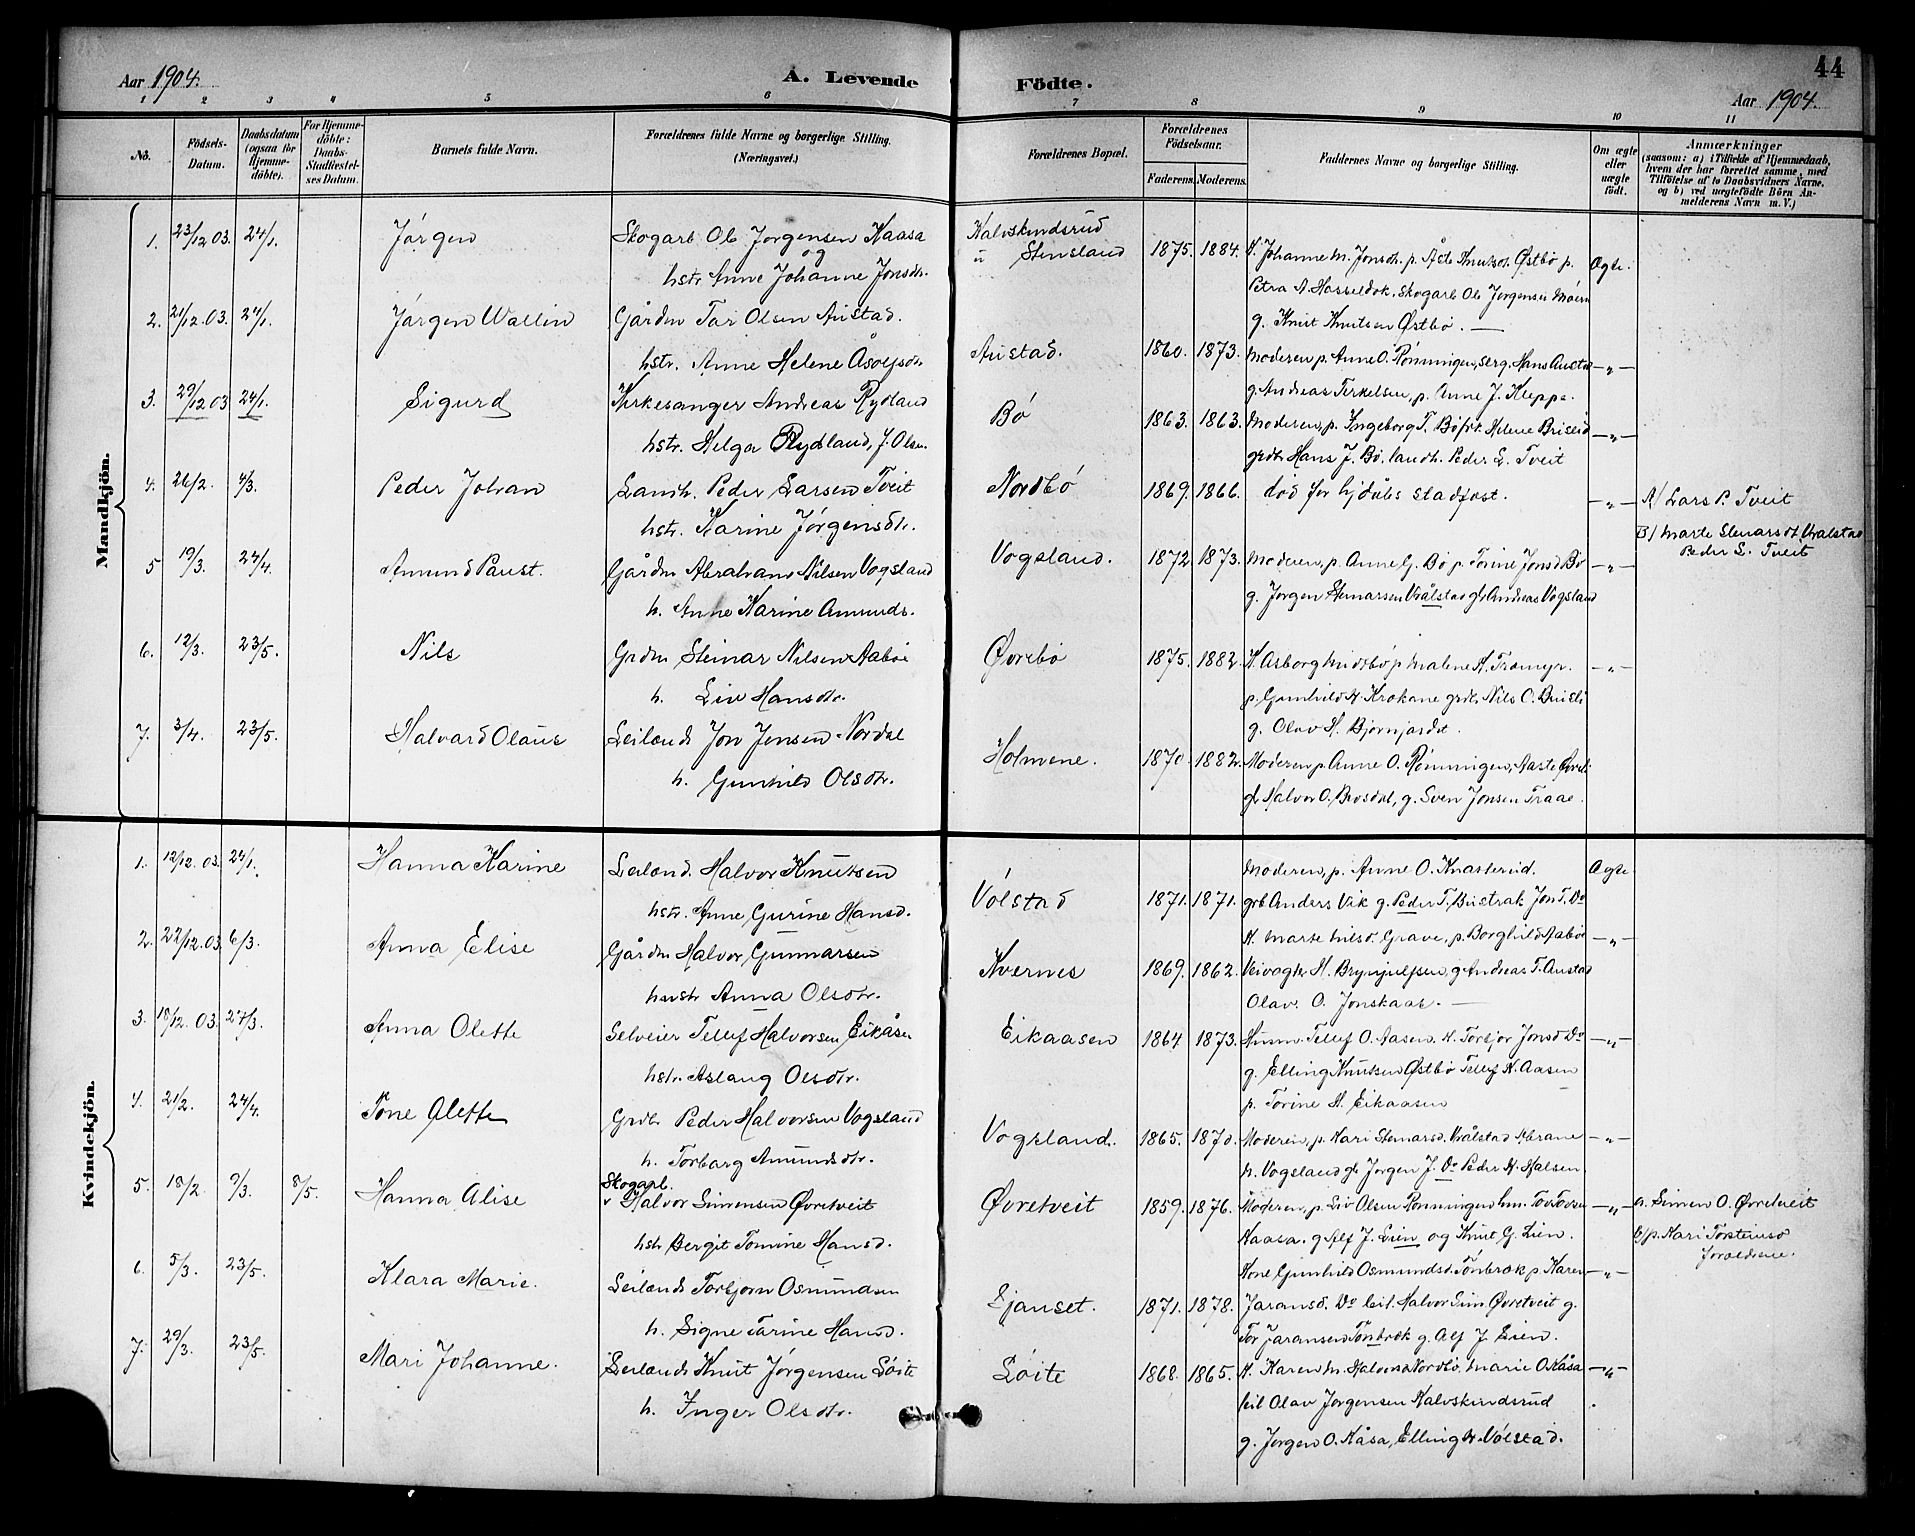 44
Aar 1904. A. Levende Födte. Aar 1904.
1 2 3 4 5 6 7 8 9 10 11
No. Födsels-Datum. Daabsdatum (ogsaa for Hjemme-döbte). For Hjemme-döbte: Daabs-Stadfæstel-ses Datum. Barnets fulde Navn. Forældrenes fulde Navne og borgerlige Stilling. (Næringsvei.) Forældrenes Bopæl. Forældrenes Födselsaar. Faderens. Moderens. Faddernes Navne og borgerlige Stilling. Om ægte eller uægte födt. Anmærkninger (saasom: a) i Tilfælde af Hjemmedaab, hvem der har forrettet samme, med Tilföielse af to Daabsvidners Navne, og b) ved uægtefödte Börn An-melderens Navn m. V.)
Mandkjön.
1. 23/12 03. 24/1. Jørgen Skogarb Ol. Jørgensen Kaasa Kalvskindsrud
og
hstr Anne Johanne Jonsdr. u Stensland 1875. 1884. K. Johanne M. Jonsdr. p. Åste Knutsd. Østbø p. Ægte.
Petra A. Hasseldok, Skogarb Ol. Jørgensen Moen
g. Knut Knutsen Østbø.
2. 21/12 03. 24/1. Jørgen Wallin Gårdm Tar Olsen Austad.
hstr. Anne Helene Åsolfsdr. Austad. 1860. 1873. Moderen p. Anne O. Rønningen, serg. Hans Austad —„—
g. Andreas Terkelsen, p. Anne J. Kleppe.
3. 29/12 03 24/1. Sigurd Kirkesanger Andreas Rydland
hstr. Helga Rydland, f. Olsen Bø 1863. 1863. Moderen, p. Ingeborg T. Bø frk. Helene Briseid —„—
grdb. Hans J. Bø. landh. Peder L. Tveit
4. 26/2. 4/3. Peder Johan Landh. Peder Larsen Tveit
hstr. Karine Jørgensdr. Nordbø 1869. 1866. død før hjdåbs stadfæst. —„— A/ Lars P. Tveit
B/ Marte Stenarsdt Vrålstad
Peder L. Tveit
5 19/3. 24/4. Amund Paust. Gårdm Abraham Nilsen Vogsland
h. Anne Karine Amunds. Vogsland. 1872 1873. Moderen, p. Anne G. Bø p. Torine Jonsd Bø —„—
g. Jørgen Stenarsen Vrålstad gb Andreas Vogsland
6. 12/3. 23/5. Nils Grdm Steinar Nilsen Aabøe
h. Liv Hansdr. Øvrebø 1875. 1882. K. Asborg Midtbø p Malene A. Tromyr. —„—
p. Gunhild H. Krokane grdb. Nils O.
g. Olav H. Bjørnjordet.
7. 3/4. 23/5. Halvard Olaus Leilænd Jon Jensen Nordal
h. Gunhild Olsdtr. Holmene. 1870 1882. Moderen p Anne O. Rønningen, Aaste
gb Halvor O. Brosdal, g. Sven Jonsen Traae.
Kvindekjön.
1. 12/12 03. 24/1. Hanna Karine Leilænd. Halvor Knutsen
hstr. Anne Gurine Hansd. Vølstad 1871. 1871. Moderen, p. Anne O. Knasterud. Ægte
grb Anders Vik g. Peder T. Bustrak Jon T. Do
2. 22/12.03. 6/3. Anna Elise Gårdm Halvor Gunnarsen
hustr Anna Olsdtr. Kvernes 1869. 1862. K. Marte Nilsd. Grave, p. Borghild Aabøe —„—
Veivogter H. Brynjulfsen, g Andreas T. Austad
Olav O. Jonskaas.
3. 18/12 03. 27/3. Anna Olette Selveier Tellef Halvorsen Eikåsen
hstr. Aslaug Olsdtr. Eikaasen 1864 1873. Husm. Tellef O. Aasen. K. Torbjor Jonsd Do —„—
g. Elling Knutsen Østbø Tellef K. Aasen
p. Torine H. Eikaasen
4. 21/2. 24/4. Tone Alette Grdb Peder Halvorsen Vogsland
h. Torbarg Amundsdtr. Vogsland. 1865. 1870. Moderen, p. Kari Stenarsd. Vrålstad Abrane —„—
N. Vogsland gb Jørgen J. Do Peder H. Halsen
5. 18/2 9/3. 8/5. Hanna Alise Skogarb.
Halvor Simonsen Øvretveit
hstr Bergit Tomine Hansd. Øvretveit 1859. 1876. Moderen, p. Liv Olsen Rønningen hm. Tov Tovsen —„— a. Simen O. Øvretveit
Kaasa. g Alf J. Lien og Knut G. Lien. b/ p. Kari Torsteinsd
forældrene.
6. 5/3. 23/5. Klara Marie. Leilænd Torbjørn Osmundsen
h. Signe Tarine Hansd. Ljanset. 1871. 1878. Kone Gunhild Osmundsd. Tonbrok p. Karen —„—
Jaransd. Do leil. Halvor Sim. Øvretveit g.
Tor Jaransen Tonbrok g. Alf J Lien.
7. 29/3. 23/5. Mari Johanne. Leilænd Knut Jørgensen Løite
h. Inger Olsdtr. Løite 1868. 1865. K. Karen M. Halvorsd Nordbø, Marie O. Kåsa —„—
leil Olav Jørgensen Kalvskindsrud
g. Jørgen O. Kåsa, Elling H. Vølstad.